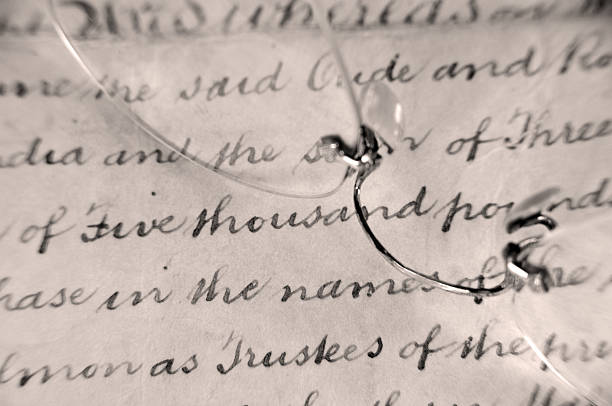 And whereas on
me the said Oude and Ro
ndia and the sum of Three
of Five thousand pounds
hase in the names of the
lmon as Trustees of the pri